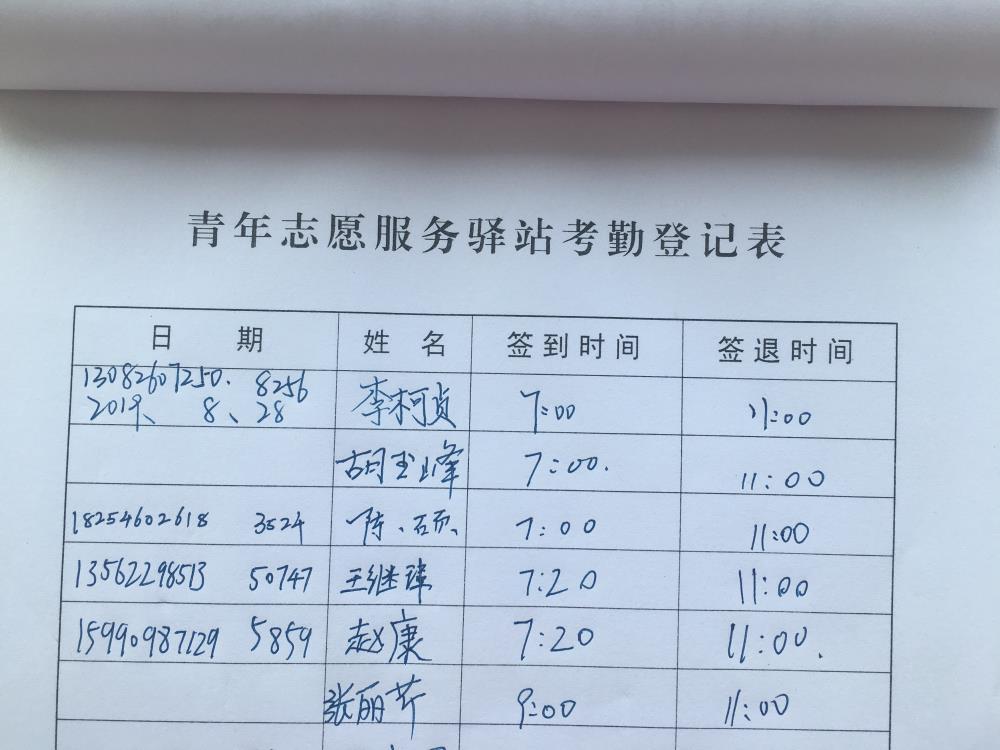 青年志愿服务驿站考勤登记表
日 期 姓 名 签到时间 签退时间
13082607250. 8256
2019、 8、28 李柯贞 7:00 11:00
胡玉峰 7:00. 11:00
18254602618 3524 陈、硕、 7:00 11:00
13562298513 50747 王继瑋 7:20 11:00
15990987129 5859 赵康 7:20 11:00.
张丽芹 9:00 11:00